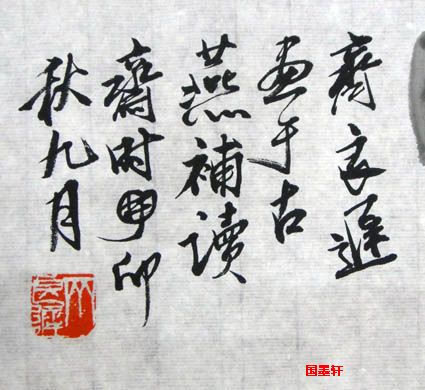 齊良遲
畫于古
燕補讀
齋時甲卯
秋九月
国墨轩